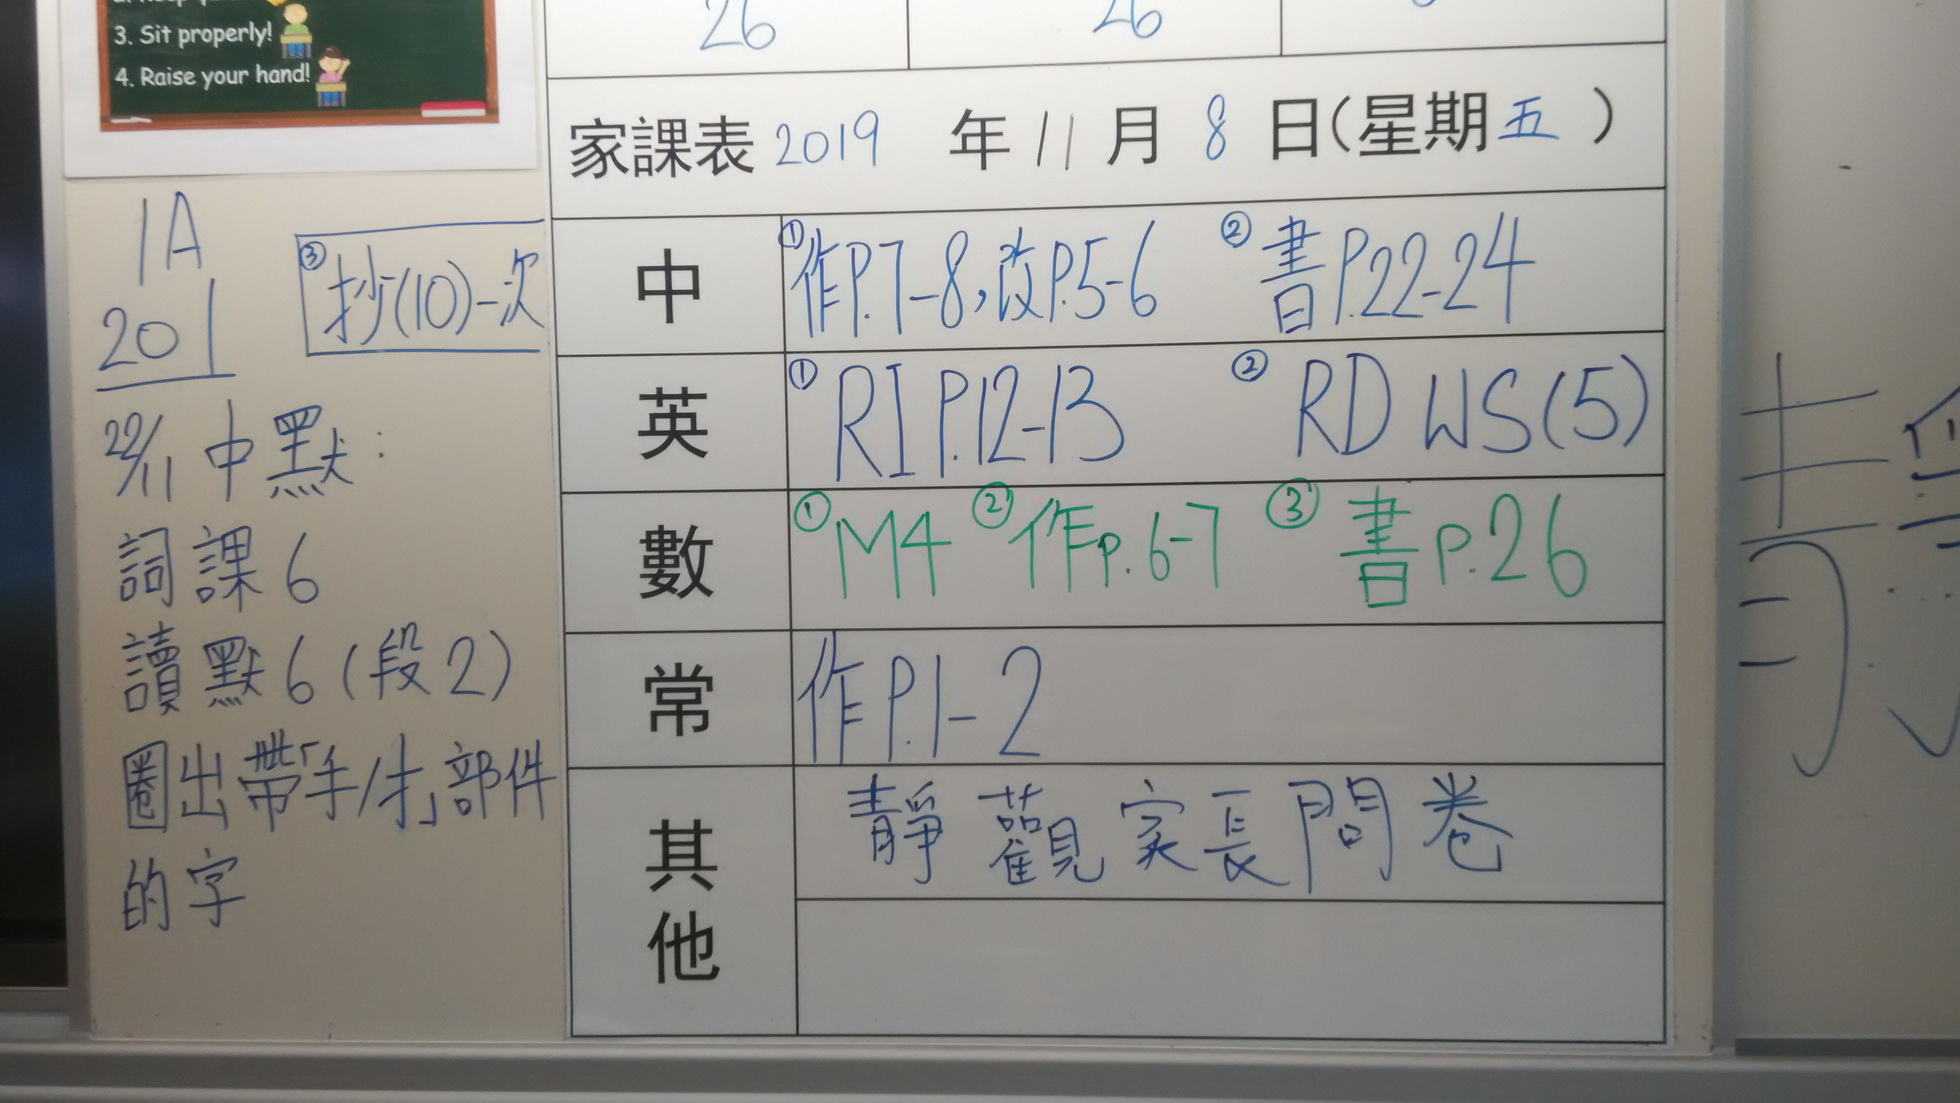 3. Sit properly!
4. Raise your hand!
26 26
家課表 2019 年 11 月 8 日(星期五)
1A
201
22/11 中默:
詞課6
讀默6(段2)
圈出帶「手/扌」部件
的字
③抄(10)一次
中 ①作P.7-8,改P.5-6 ②書P.22-24
英 ①RI P.12-13 ②RD WS(5)
數 ①M4 ②作p.6-7 ③書p.26
常 作P.1-2
其他 靜觀家長問卷